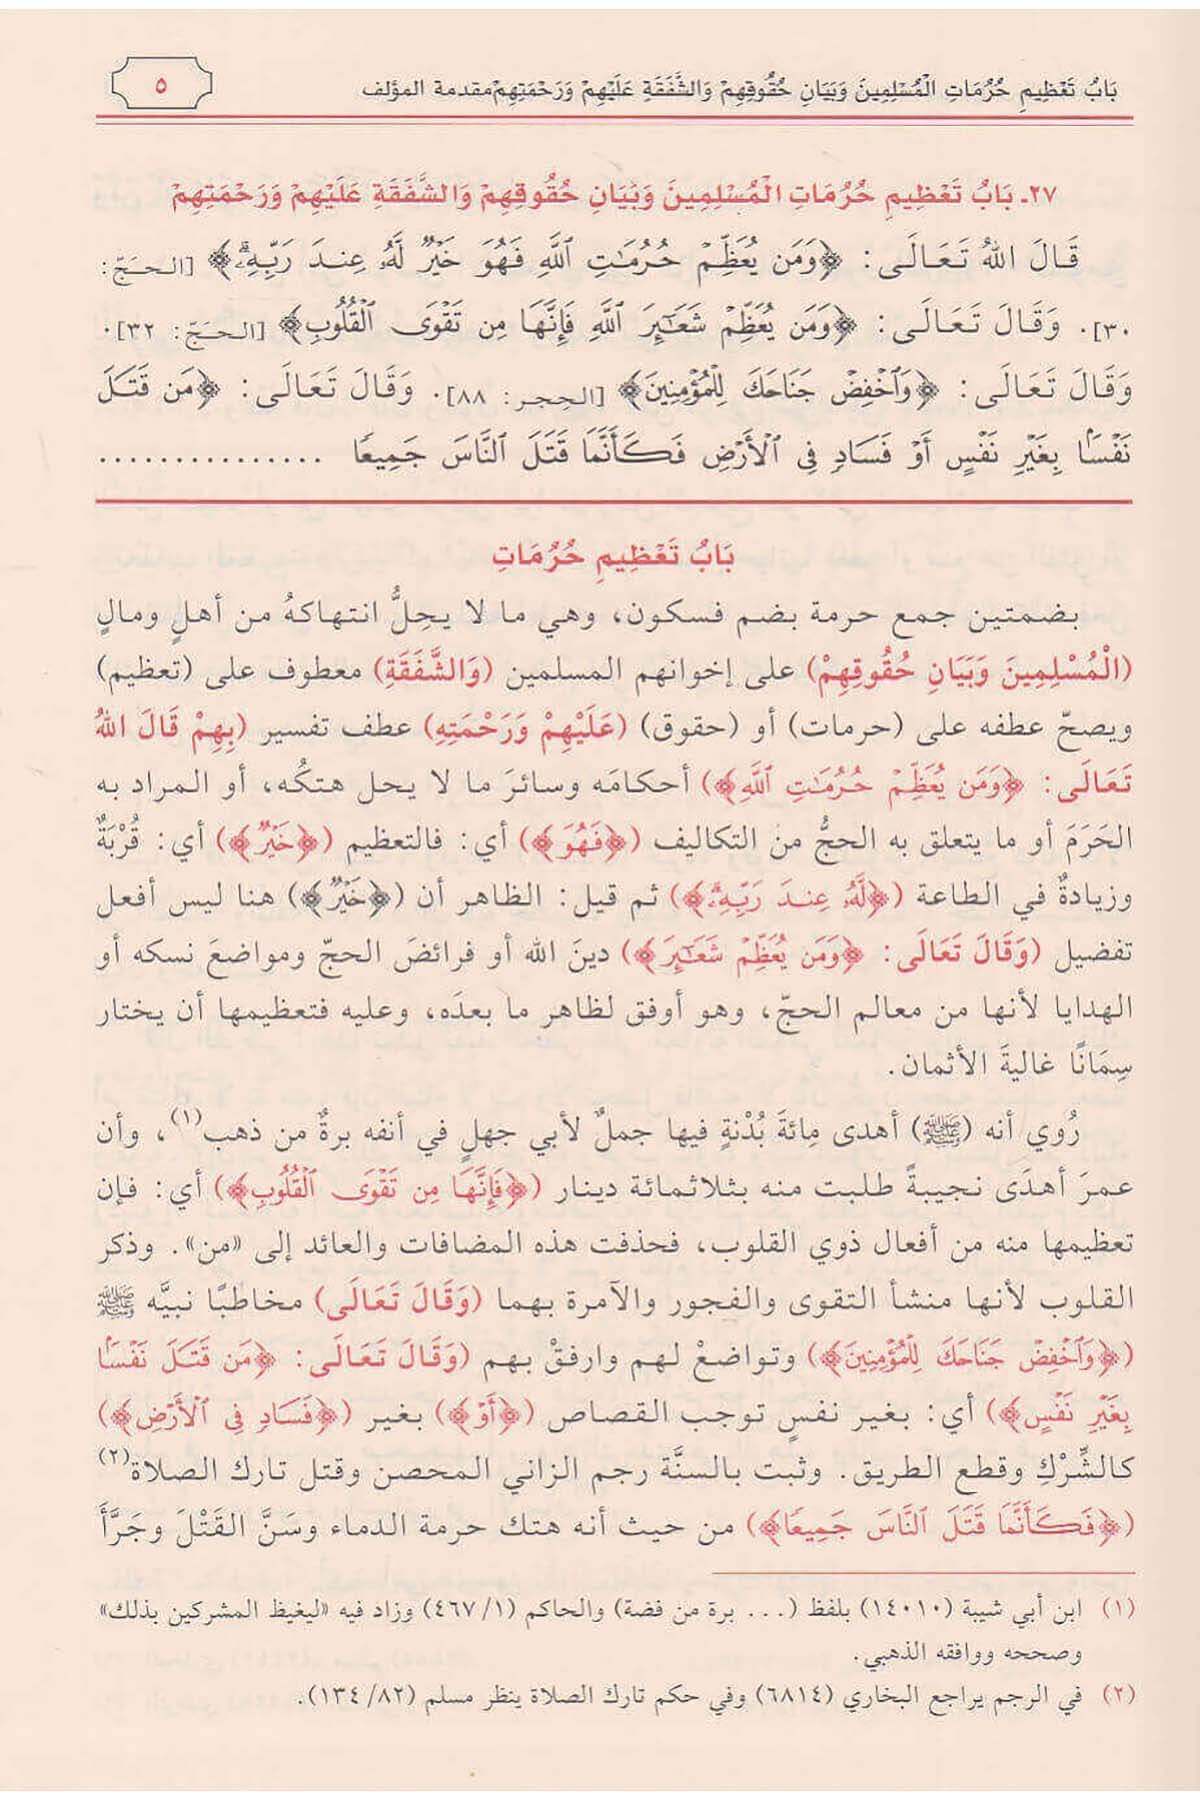 بَابُ تَعْظِيمِ حُرُمَاتِ الْمُسْلِمِينَ وَبَيَانِ حُقُوقِهِمْ وَالشَّفَقَةِ عَلَيْهِمْ وَرَحْمَتِهِمْمقدمة المؤلف ٥
٢٧ـ بَابُ تَعْظِيمِ حُرُمَاتِ الْمُسْلِمِينَ وَبَيَانِ حُقُوقِهِمْ وَالشَّفَقَةِ عَلَيْهِمْ وَرَحْمَتِهِمْ
قَالَ اللهُ تَعَالَى: ﴿وَمَن يُعَظِّمْ حُرُمَٰتِ ٱللَّهِ فَهُوَ خَيْرٌ لَّهُۥ عِندَ رَبِّهِۦ﴾ [الحَجّ:
٣٠]. وَقَالَ تَعَالَى: ﴿وَمَن يُعَظِّمْ شَعَٰٓئِرَ ٱللَّهِ فَإِنَّهَا مِن تَقْوَى ٱلْقُلُوبِ﴾ [الحَجّ: ٣٢].
وَقَالَ تَعَالَى: ﴿وَٱخْفِضْ جَنَاحَكَ لِلْمُؤْمِنِينَ﴾ [الحِجر: ٨٨]. وَقَالَ تَعَالَى: ﴿مَن قَتَلَ
نَفْسًۢا بِغَيْرِ نَفْسٍ أَوْ فَسَادٍ فِى ٱلْأَرْضِ فَكَأَنَّمَا قَتَلَ ٱلنَّاسَ جَمِيعًا ...............
بَابُ تَعْظِيمِ حُرُمَاتِ
بضمتين جمع حرمة بضم فسكون، وهي ما لا يحِلُّ انتهاكهُ من أهلٍ ومالٍ
(الْمُسْلِمِينَ وَبَيَانِ حُقُوقِهِمْ) على إخوانهم المسلمين (وَالشَّفَقَةِ) معطوف على (تعظيم)
ويصحّ عطفه على (حرمات) أو (حقوق) (عَلَيْهِمْ وَرَحْمَتِهِ) عطف تفسير (بِهِمْ قَالَ اللهُ
تَعَالَى: ﴿وَمَن يُعَظِّمْ حُرُمَٰتِ ٱللَّهِ﴾) أحكامَه وسائرَ ما لا يحل هتكُه، أو المراد به
الحَرَمَ أو ما يتعلق به الحجُّ من التكاليف (﴿فَهُوَ﴾) أي: فالتعظيم (﴿خَيْرٌ﴾) أي: قُرْبَةٌ
وزيادةٌ في الطاعة (﴿لَّهُۥ عِندَ رَبِّهِۦ﴾) ثم قيل: الظاهر أن (﴿خَيْرٌ﴾) هنا ليس أفعل
تفضيل (وَقَالَ تَعَالَى: ﴿وَمَن يُعَظِّمْ شَعَٰٓئِرَ﴾) دينَ الله أو فرائضَ الحجّ ومواضعَ نسكه أو
الهدايا لأنها من معالم الحجّ، وهو أوفق لظاهر ما بعدَه، وعليه فتعظيمها أن يختار
سِمَانًا غاليةَ الأثمان.
رُوي أنه (ﷺ) أهدى مِائةَ بُدْنةٍ فيها جملٌ لأبي جهلٍ في أنفه برةٌ من ذهب(١)، وأن
عمرَ أهدَى نجيبةً طلبت منه بثلاثمائة دينار (﴿فَإِنَّهَا مِن تَقْوَى ٱلْقُلُوبِ﴾) أي: فإن
تعظيمها منه من أفعال ذوي القلوب، فحذفت هذه المضافات والعائد إلى «من». وذكر
القلوب لأنها منشأ التقوى والفجور والآمرة بهما (وَقَالَ تَعَالَى) مخاطبًا نبيَّه ﷺ
(﴿وَٱخْفِضْ جَنَاحَكَ لِلْمُؤْمِنِينَ﴾) وتواضعْ لهم وارفقْ بهم (وَقَالَ تَعَالَى: ﴿مَن قَتَلَ نَفْسًۢا
بِغَيْرِ نَفْسٍ﴾) أي: بغير نفسٍ توجب القصاص (﴿أَوْ﴾) بغير (﴿فَسَادٍ فِى ٱلْأَرْضِ﴾)
كالشِّرْكِ وقطع الطريق. وثبت بالسنَّة رجم الزاني المحصن وقتل تارك الصلاة(٢)
(﴿فَكَأَنَّمَا قَتَلَ ٱلنَّاسَ جَمِيعًا﴾) من حيث أنه هتك حرمة الدماء وسَنَّ القَتْلَ وجَرَّأَ
(١) ابن أبي شيبة (١٤٠١٠) بلفظ (... برة من فضة) والحاكم (١/ ٤٦٧) وزاد فيه «ليغيظ المشركين بذلك»
وصححه ووافقه الذهبي.
(٢) في الرجم يراجع البخاري (٦٨١٤) وفي حكم تارك الصلاة ينظر مسلم (٨٢/ ١٣٤).